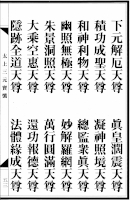 下元解厄天尊　真皇天尊
積功成聖天尊　凝神照境天尊
和神利物天尊　總監眾真天尊
幽照無極天尊　妙解羅網天尊
朱景洞照天尊　萬行圓滿天尊
大乘空惠天尊　還功報德天尊
隱跡全道天尊　法體緣成天尊
太上三元寶懺